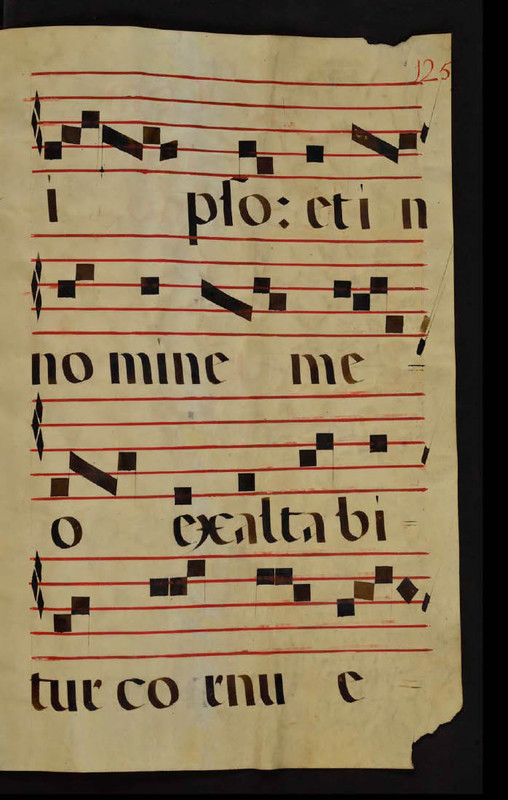 125
i pſo: et i n
no mine me =
o exalta bi =
tur co rnu e =